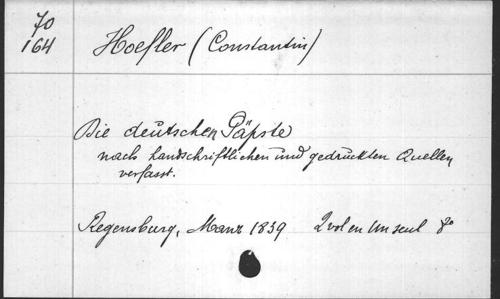 70
164
Hoefler (Constantin)
Die deutschen Päpste
nach handschriftlichen und gedruckten Quellen
verfasst.
Regensburg, Manz 1839 2 vol en un seul 8º